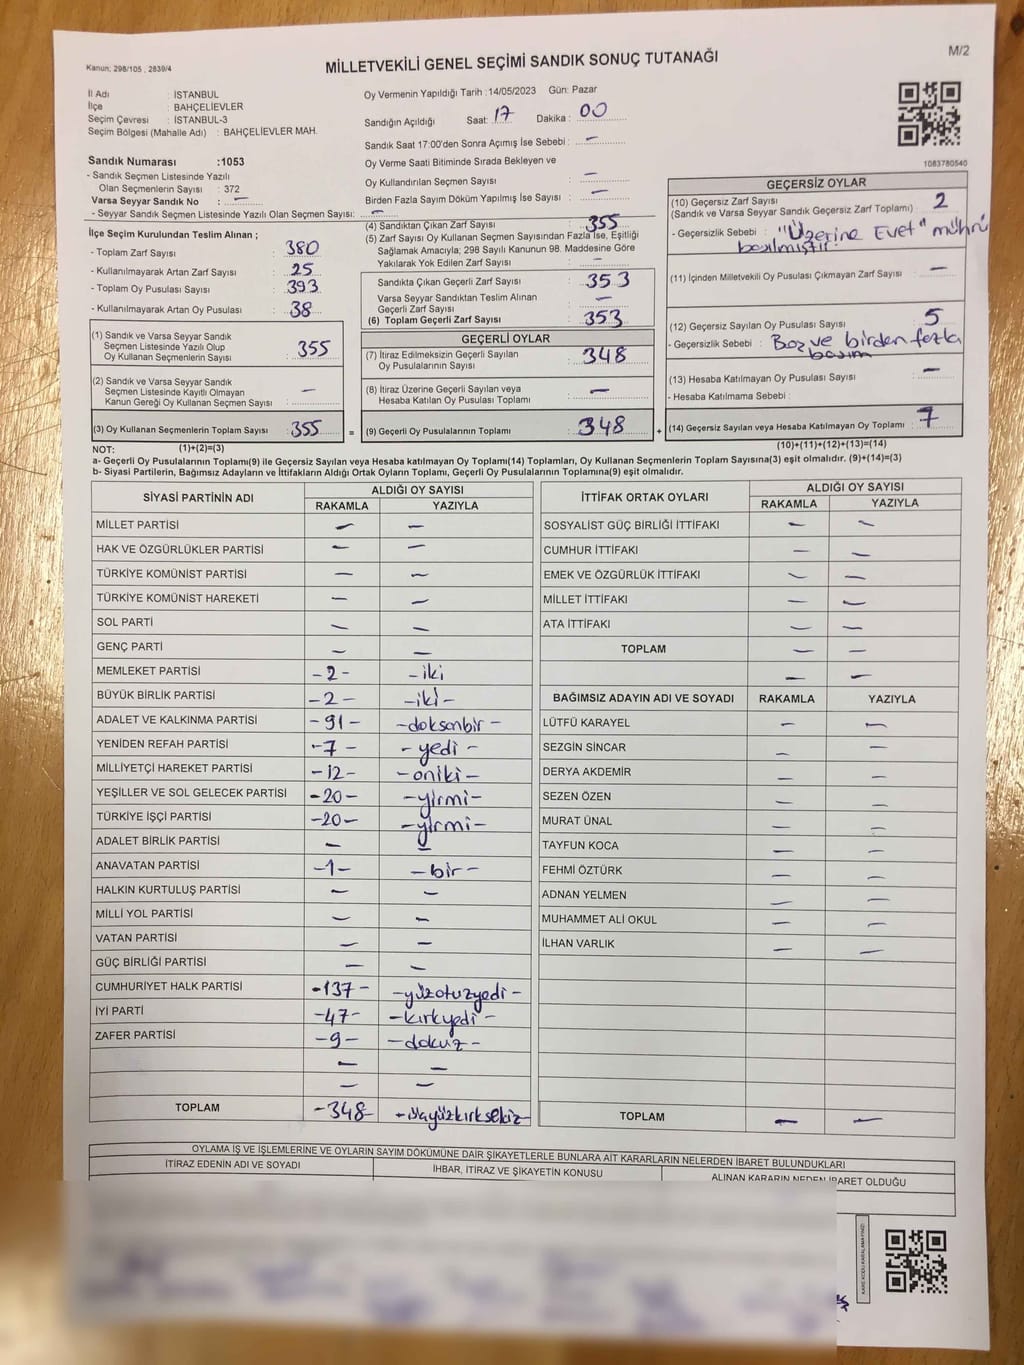 M/2
Kanun; 298/105 , 2839/4
MİLLETVEKİLİ GENEL SEÇİMİ SANDIK SONUÇ TUTANAĞI
İl Adı : İSTANBUL
İlçe : BAHÇELİEVLER
Seçim Çevresi : İSTANBUL-3
Seçim Bölgesi (Mahalle Adı) : BAHÇELİEVLER MAH.
Sandık Numarası :1053
- Sandık Seçmen Listesinde Yazılı
Olan Seçmenlerin Sayısı : 372
Varsa Seyyar Sandık No : —
- Seyyar Sandık Seçmen Listesinde Yazılı Olan Seçmen Sayısı: —
İlçe Seçim Kurulundan Teslim Alınan ;
- Toplam Zarf Sayısı : 380
- Kullanılmayarak Artan Zarf Sayısı : 25
- Toplam Oy Pusulası Sayısı : 393
- Kullanılmayarak Artan Oy Pusulası : 38
(1) Sandık ve Varsa Seyyar Sandık
Seçmen Listesinde Yazılı Olup
Oy Kullanan Seçmenlerin Sayısı : 355
(2) Sandık ve Varsa Seyyar Sandık
Seçmen Listesinde Kayıtlı Olmayan
Kanun Gereği Oy Kullanan Seçmen Sayısı : —
(3) Oy Kullanan Seçmenlerin Toplam Sayısı : 355
Oy Vermenin Yapıldığı Tarih :14/05/2023 Gün: Pazar
Sandığın Açıldığı Saat: 17 Dakika : 00
Sandık Saat 17:00'den Sonra Açımış İse Sebebi : —
Oy Verme Saati Bitiminde Sırada Bekleyen ve
Oy Kullandırılan Seçmen Sayısı : —
Birden Fazla Sayım Döküm Yapılmış İse Sayısı : —
(4) Sandıktan Çıkan Zarf Sayısı : 355
(5) Zarf Sayısı Oy Kullanan Seçmen Sayısından Fazla İse, Eşitliği
Sağlamak Amacıyla; 298 Sayılı Kanunun 98. Maddesine Göre
Yakılarak Yok Edilen Zarf Sayısı : —
Sandıkta Çıkan Geçerli Zarf Sayısı : 353
Varsa Seyyar Sandıktan Teslim Alınan
Geçerli Zarf Sayısı : —
(6) Toplam Geçerli Zarf Sayısı : 353
GEÇERLİ OYLAR
(7) İtiraz Edilmeksizin Geçerli Sayılan
Oy Pusulalarının Sayısı : 348
(8) İtiraz Üzerine Geçerli Sayılan veya
Hesaba Katılan Oy Pusulası Toplamı : —
= (9) Geçerli Oy Pusulalarının Toplamı : 348 +
1083780540
GEÇERSİZ OYLAR
(10) Geçersiz Zarf Sayısı : 2
(Sandık ve Varsa Seyyar Sandık Geçersiz Zarf Toplamı)
- Geçersizlik Sebebi : "Üzerine Evet" mührü
basılmıştır
(11) İçinden Milletvekili Oy Pusulası Çıkmayan Zarf Sayısı : —
(12) Geçersiz Sayılan Oy Pusulası Sayısı : 5
- Geçersizlik Sebebi : Boz ve birden fazla
basım
(13) Hesaba Katılmayan Oy Pusulası Sayısı : —
- Hesaba Katılmama Sebebi :
(14) Geçersiz Sayılan veya Hesaba Katılmayan Oy Pusulası Toplamı : 7
NOT: (1)+(2)=(3) (10)+(11)+(12)+(13)=(14)
a- Geçerli Oy Pusulalarının Toplamı(9) ile Geçersiz Sayılan veya Hesaba katılmayan Oy Toplamı(14) Toplamları, Oy Kullanan Seçmenlerin Toplam Sayısına(3) eşit olmalıdır. (9)+(14)=(3)
b- Siyasi Partilerin, Bağımsız Adayların ve İttifakların Aldığı Ortak Oyların Toplamı, Geçerli Oy Pusulalarının Toplamına(9) eşit olmalıdır.
SİYASİ PARTİNİN ADI ALDIĞI OY SAYISI
RAKAMLA YAZIYLA
MİLLET PARTİSİ — —
HAK VE ÖZGÜRLÜKLER PARTİSİ — —
TÜRKİYE KOMÜNİST PARTİSİ — —
TÜRKİYE KOMÜNİST HAREKETİ — —
SOL PARTİ — —
GENÇ PARTİ — —
MEMLEKET PARTİSİ -2- -iki
BÜYÜK BİRLİK PARTİSİ -2- -iki-
ADALET VE KALKINMA PARTİSİ -91- -doksanbir-
YENİDEN REFAH PARTİSİ -7- -yedi-
MİLLİYETÇİ HAREKET PARTİSİ -12- -oniki-
YEŞİLLER VE SOL GELECEK PARTİSİ -20- -yirmi-
TÜRKİYE İŞÇİ PARTİSİ -20- -yirmi-
ADALET BİRLİK PARTİSİ — —
ANAVATAN PARTİSİ -1- -bir-
HALKIN KURTULUŞ PARTİSİ — —
MİLLİ YOL PARTİSİ — —
VATAN PARTİSİ — —
GÜÇ BİRLİĞİ PARTİSİ — —
CUMHURİYET HALK PARTİSİ -137- -yüzotuzyedi-
İYİ PARTİ -47- -kırkyedi-
ZAFER PARTİSİ -9- -dokuz-
— —
— —
TOPLAM -348- -üçyüzkırksekiz
İTTİFAK ORTAK OYLARI ALDIĞI OY SAYISI
RAKAMLA YAZIYLA
SOSYALİST GÜÇ BİRLİĞİ İTTİFAKI — —
CUMHUR İTTİFAKI — —
EMEK VE ÖZGÜRLÜK İTTİFAKI — —
MİLLET İTTİFAKI — —
ATA İTTİFAKI — —
TOPLAM — —
— —
BAĞIMSIZ ADAYIN ADI VE SOYADI RAKAMLA YAZIYLA
LÜTFÜ KARAYEL — —
SEZGİN SİNCAR — —
DERYA AKDEMİR — —
SEZEN ÖZEN — —
MURAT ÜNAL — —
TAYFUN KOCA — —
FEHMİ ÖZTÜRK — —
ADNAN YELMEN — —
MUHAMMET ALİ OKUL — —
İLHAN VARLIK — —
TOPLAM — —
OYLAMA İŞ VE İŞLEMLERİNE VE OYLARIN SAYIM DÖKÜMÜNE DAİR ŞİKAYETLERLE BUNLARA AİT KARARLARIN NELERDEN İBARET BULUNDUKLARI
İTİRAZ EDENİN ADI VE SOYADI İHBAR, İTİRAZ VE ŞİKAYETİN KONUSU ALINAN KARARIN NEDEN İBARET OLDUĞU
KARE KODU KARALAMAYINIZ!